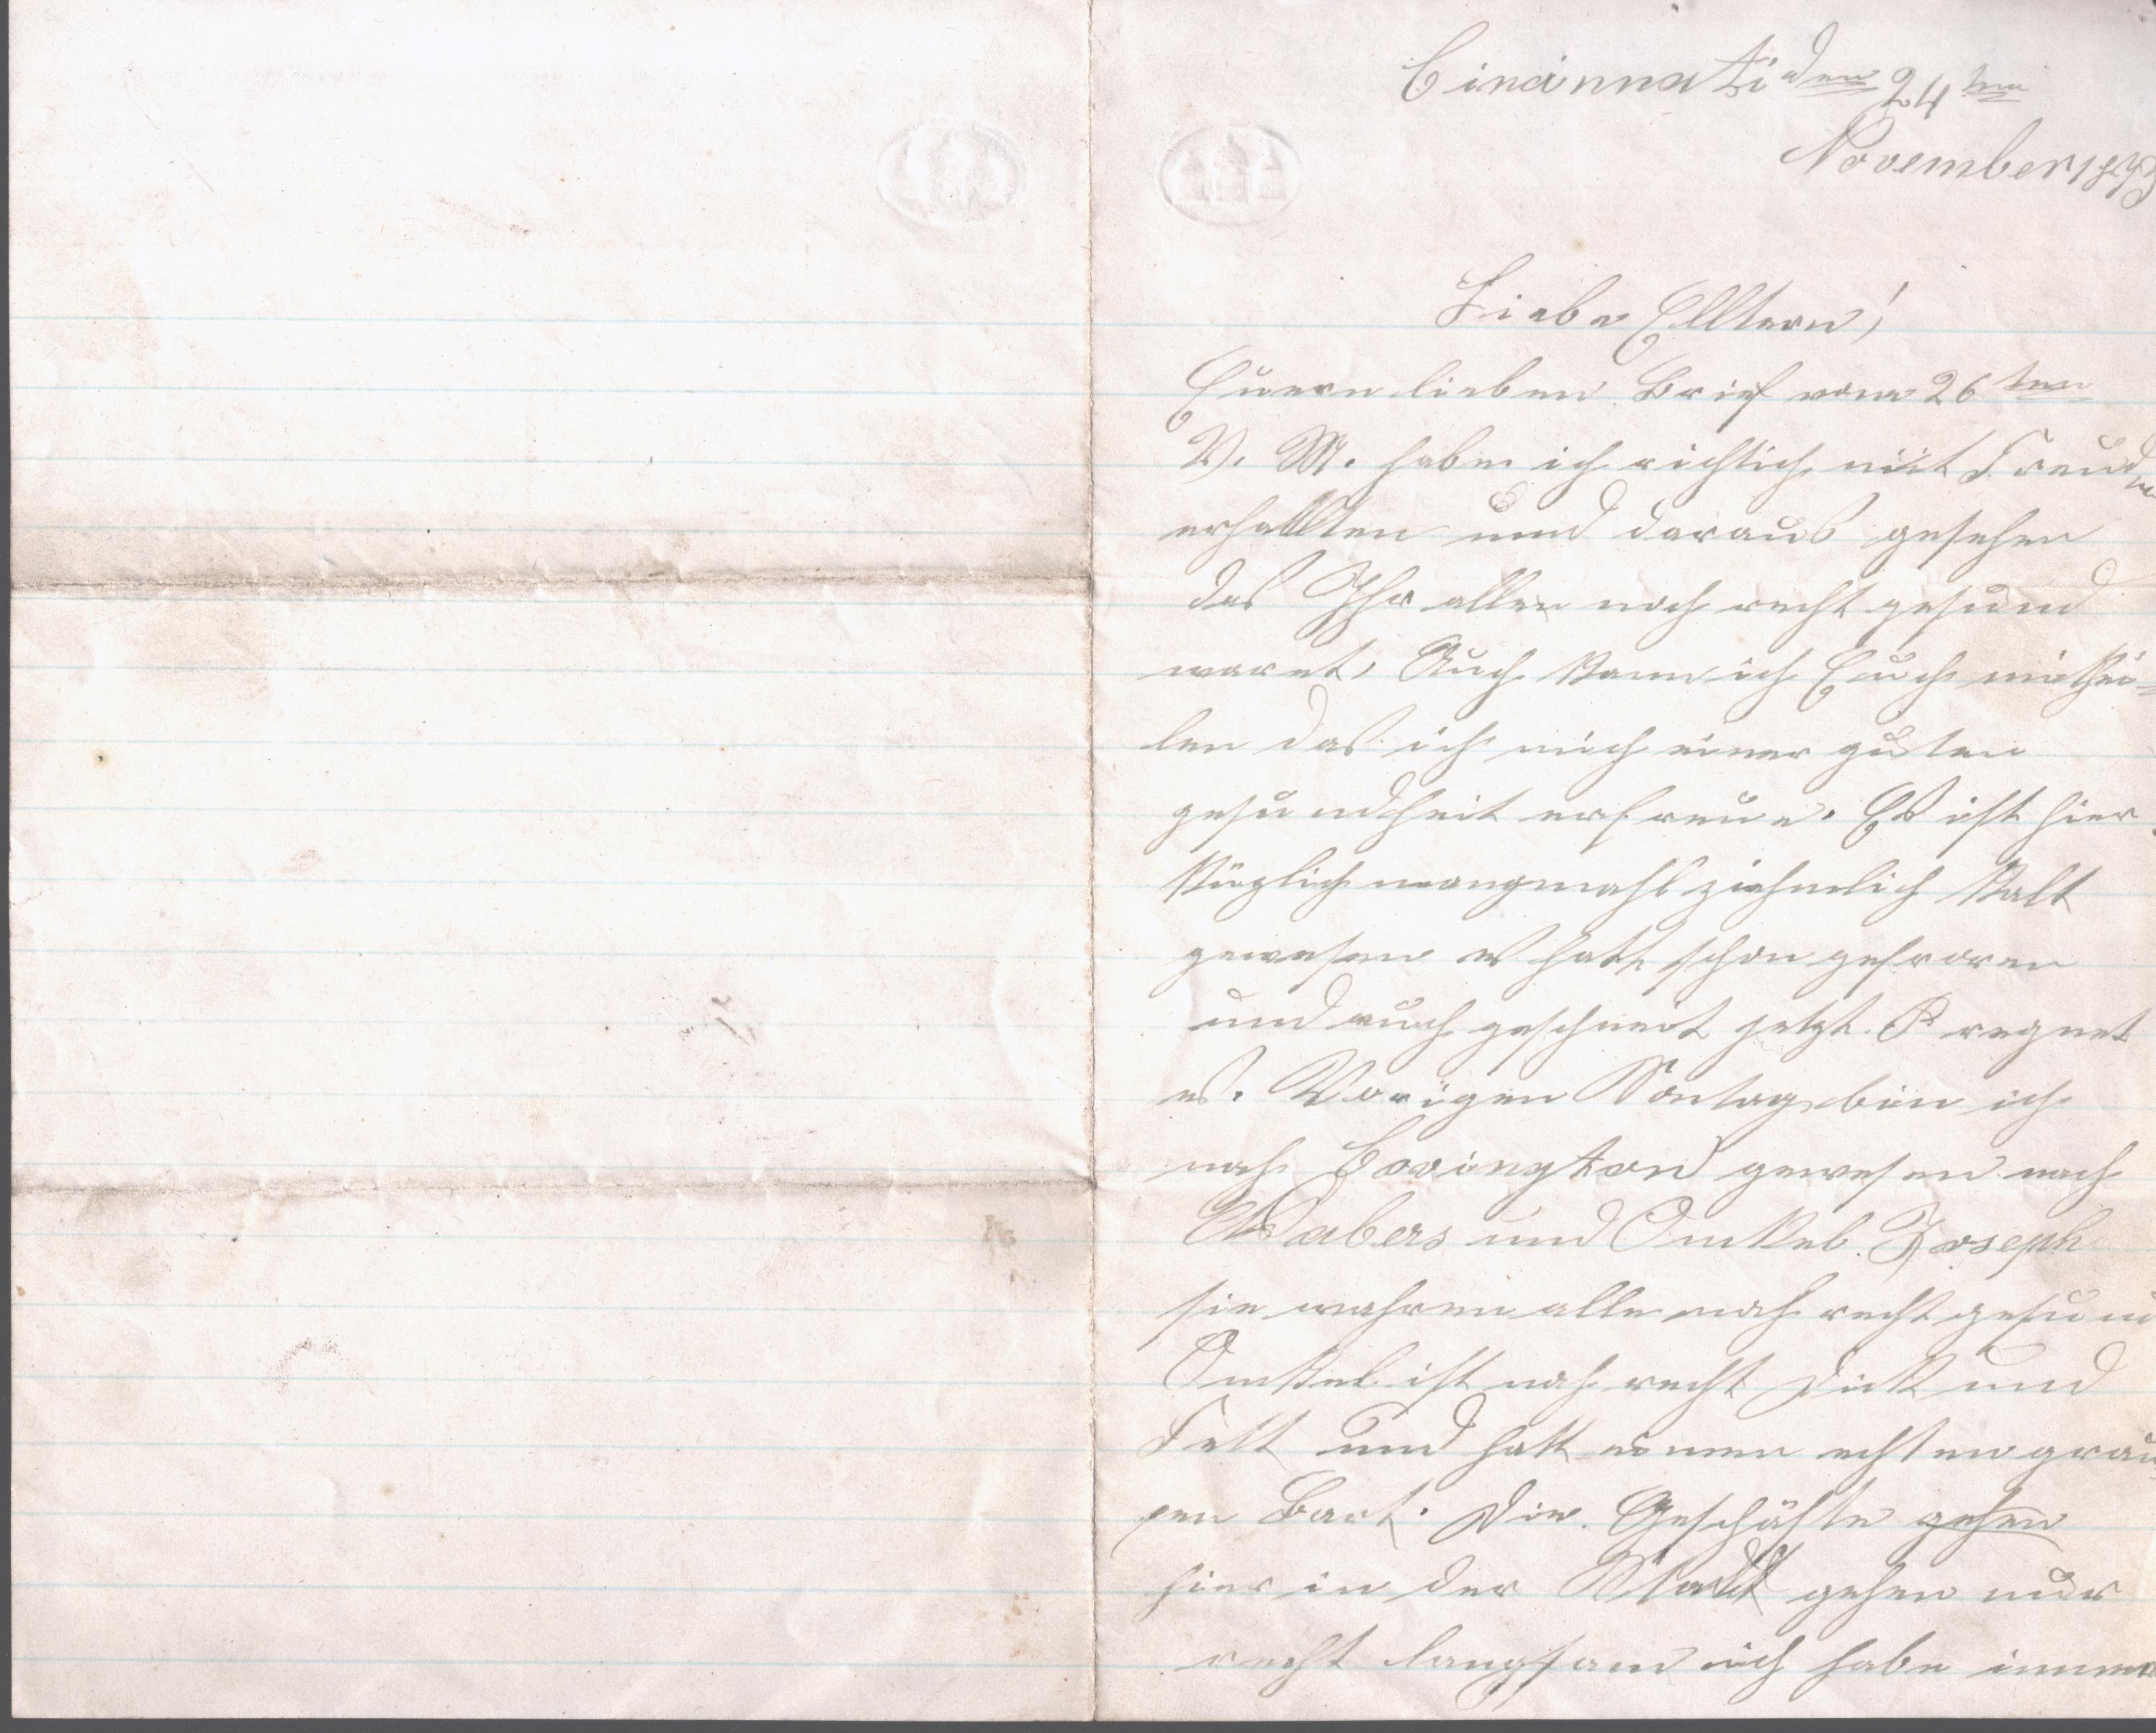 Cincinnati den 24ten
November 187
Liebe Elltern!
Euern lieben Brief vom 26ten
V. M. habe ich richtich mit Freuden
erhallten und daraus gesehen
das Ihr aller noch recht gesund
waret, Auch kann ich Euch mithei-
len das ich mich einer guten
gesundheit erfreue. Es ist hier
kürzlich mangmahl ziehmlich kalt
gewesen es hatt schon gefroren
und auch geschneit jetzt regnet
es. Vorigen Sontag bin ich
nach Covington gewesen nach
Wabers und Onkel Joseph
sie wahren alle noch recht gesund
Onkel ist noch recht dick und
Fett und hatt einen echten grau
en Bart. Die Geschäfte gehen
hier in der Stadt gehen nur
recht langsam ich habe immer